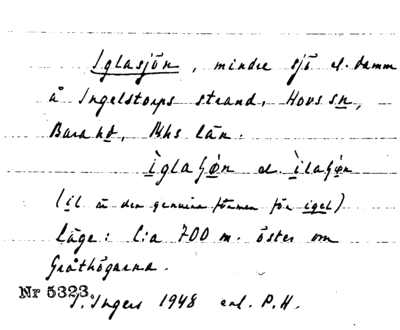 Iglasjön, mindre sjö el. damm
å Ingelstorps strand, Hovs sn,
Bara hd, Mhs län.
ìglaʃø̀n el. ìlaʃø̀n
(il är den genuina formen för igel)
läge: c:a 700 m. öster om
Gråthögarna.
Nr 5323.
I. Ingers 1948 enl. P.H.